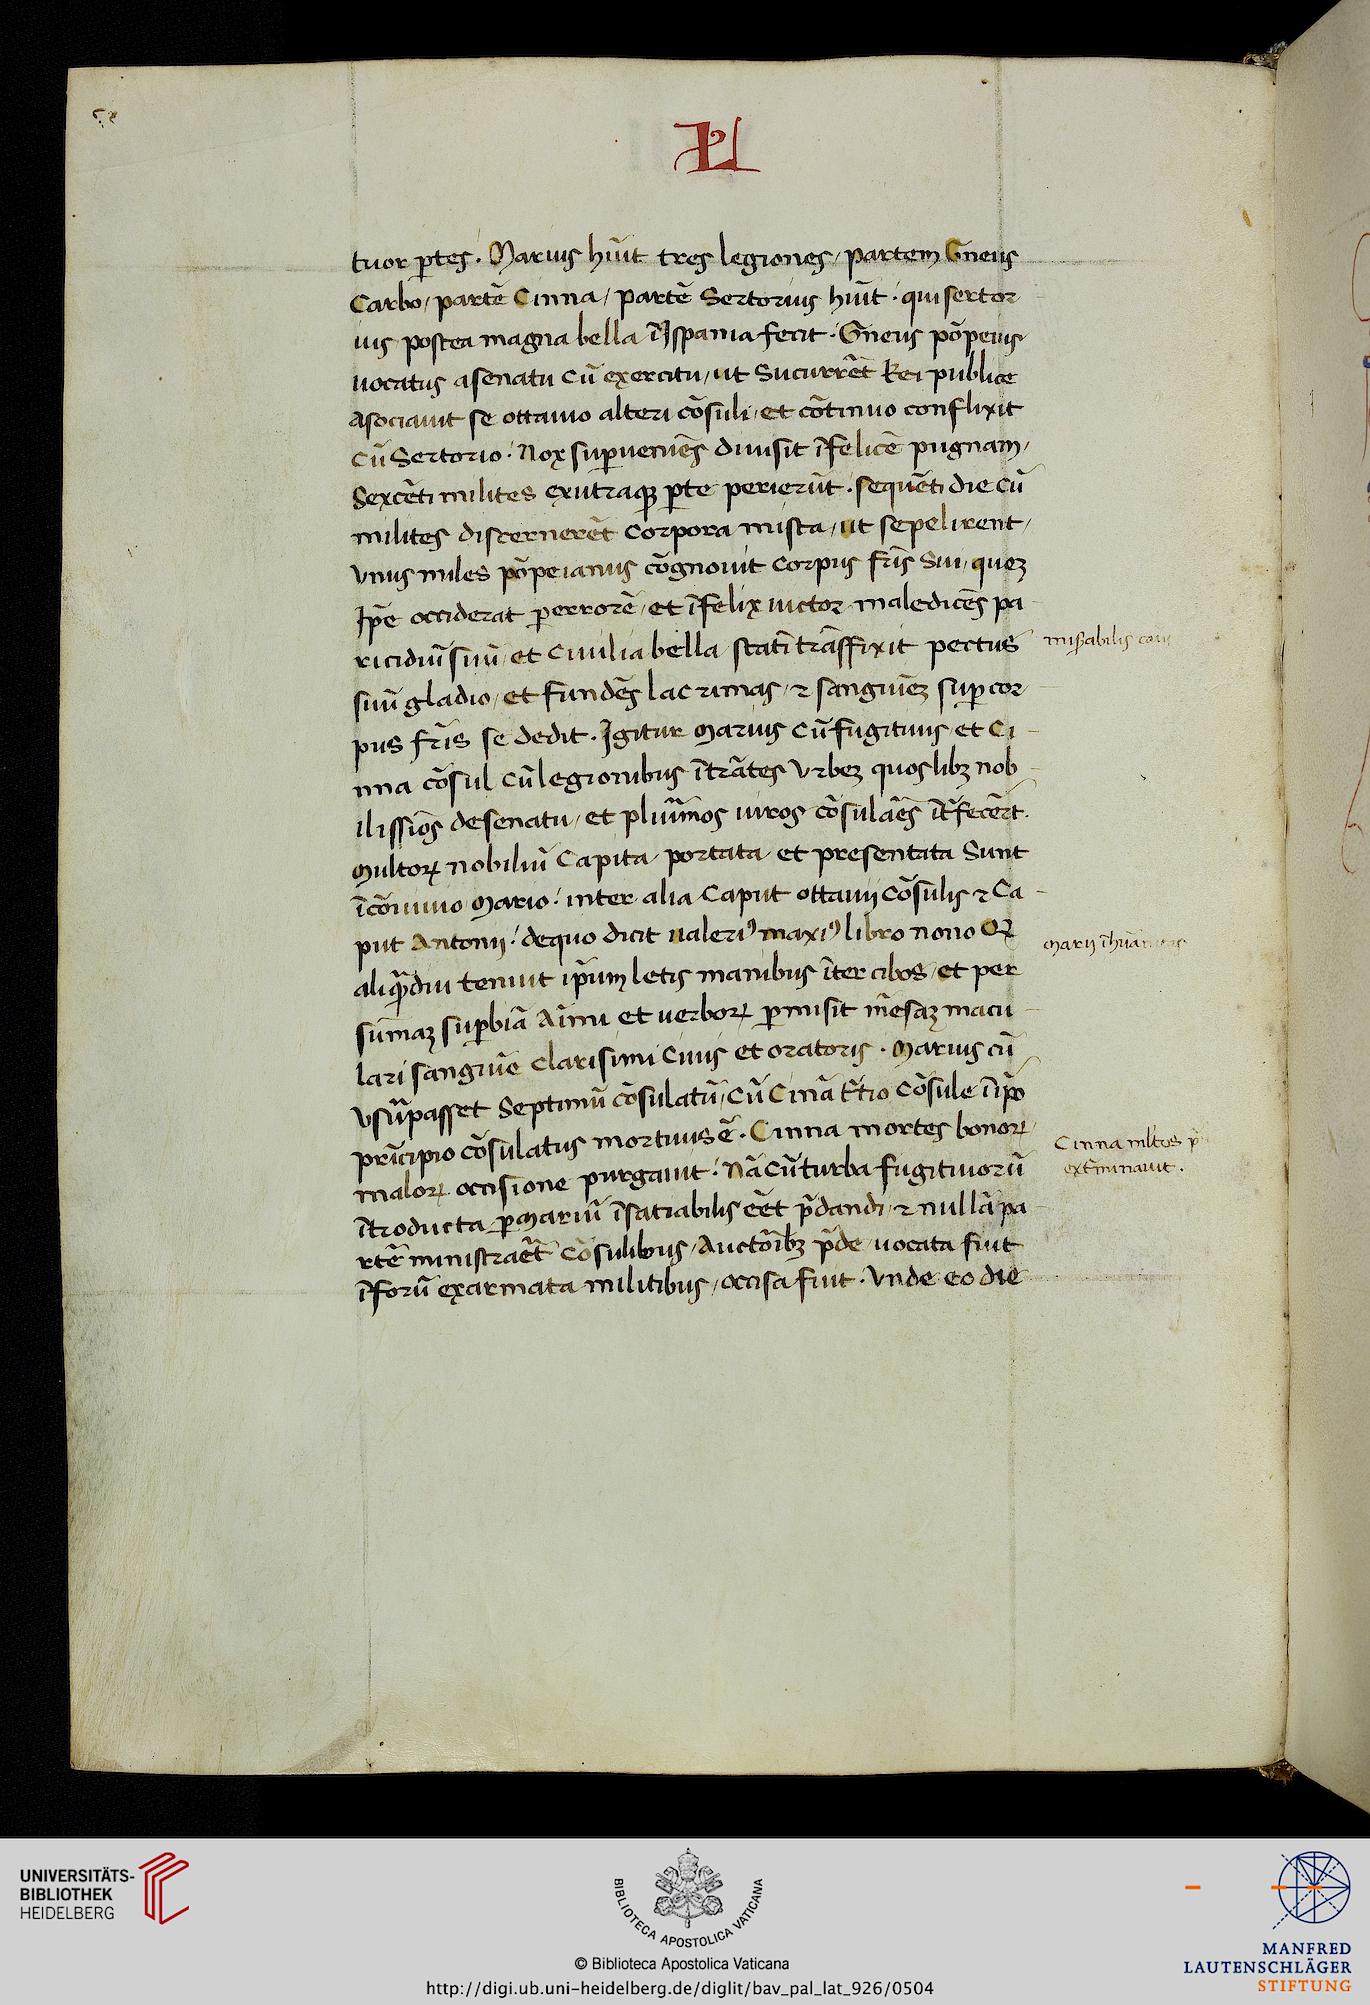 L
tuor ꝑtes. Marius hũit tres legiones / partem Gneus
Carbo / partẽ Cinna / partẽ Sertorius hũit. qui sertor
ius postea magna bella ĩ Ispania fecit. Gneus põpeius
uocatus a senatu cũ exercitu / ut Sucurrẽt Rei publice
asociauit se ottauio alteri cõsuli / et cõtinuo conflixit
cũ Sertorio. Nox suꝑueniẽs diuisit ĩfelicẽ pugnam /
Sexcẽti milites ex utraqꝫ ꝑte perierũt. sequẽti die cũ
milites discernerẽt corpora mista / ut sepelirent /
Vnus miles põpeianus cõgnouit corpus fr̃is Sui / quez
Ip̃e occiderat ꝑ errorẽ / et ĩfelix uictor maledicẽs pa
ricidiũ suũ / et Ciuilia bella / statĩ trãsfixit pectus
suũ gladio / et fundẽs lacrimas / ⁊ sanguinẽz suꝑ cor
pus fr̃is se dedit. Igitur Marius cũ fugitiuis et Ci
nna cõsul cũ legionibus ĩtrãtes Vrbez quoslibꝫ nob
ilissiõs de senatu / et pluũmos uiros cõsulaẽs ĩt̃fecẽrt.
Multoꝝ nobiliũ Capita / portata / et presentata Sunt
ĩ cõuiuio Mario: inter alia Caput ottauij Cõsulis ⁊ Ca
put Antonij: de quo dicit ualeriꝰ maxiꝰ libro nono Qꝫ
aliqñdiu tenuit ip̃um letis manibus ĩter cibos / et per
sũmaz suꝑbiã Aĩmi et uerboꝝ ꝑmisit mẽsaz macu
lari sanguĩe clarisimi Ciuis et oratoris. Marius cũ
Vsũpasset Septimũ cõsulatũ / Cũ Cinã t̃tio Cõsule ĩ ip̃o
prĩcipio cõsulatus mortuus ẽ. Cinna mortes bonoꝝ
maloꝝ occisione purgauit: Nã cũ turba fugitiuorũ
ĩtroducta ꝑ Mariũ ĩsatiabilis eẽt p̃dandi / ⁊ nullã pa
rtẽ ministraẽt Cõsulibus / Auctõibꝫ p̃de / uocata fuit
ĩ forũ exarmata militibus / occisa fuit. Vnde eo die
mis̃abilis
Marij
Cinna milites p̃
ext̃minauit.
UNIVERSITÄTS-
BIBLIOTHEK
HEIDELBERG
BIBLIOTECA APOSTOLICA VATICANA
© Biblioteca Apostolica Vaticana
http://digi.ub.uni-heidelberg.de/diglit/bav_pal_lat_926/0504
MANFRED
LAUTENSCHLÄGER
STIFTUNG